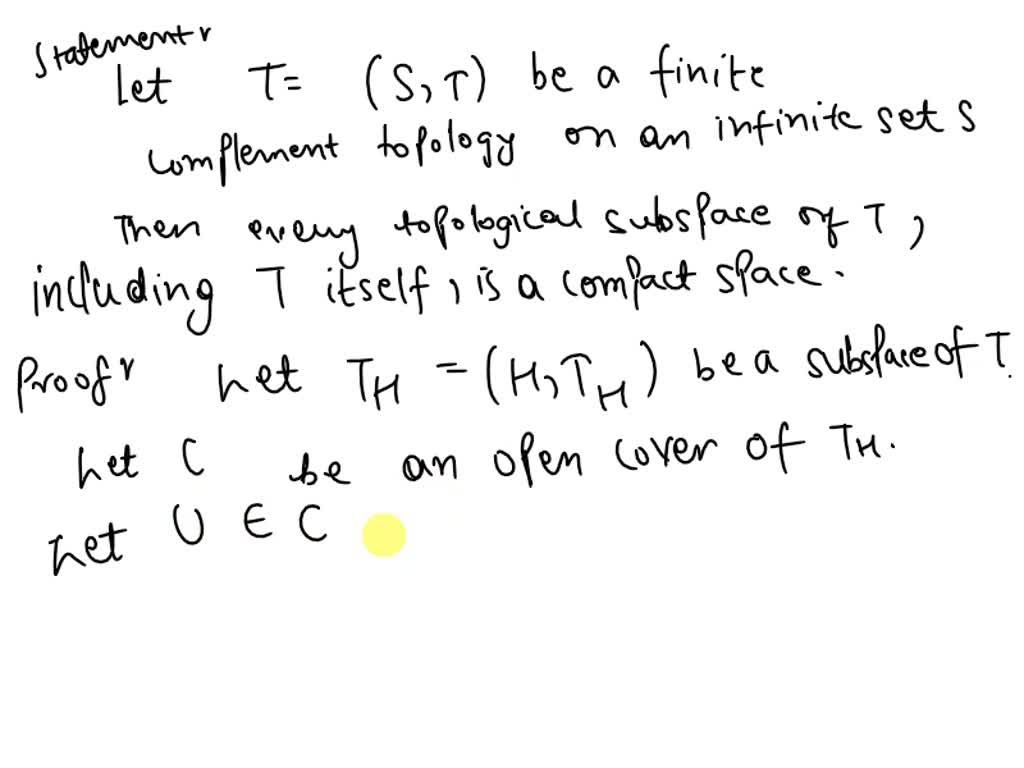 Statement
Let T= (S, T) be a finite
complement topology on an infinite set S
Then every topological subspace of T,
including T itself, is a compact space.
Proof Let TH = (H, TH) be a subspace of T.
Let C be an open cover of TH.
Let U ∈ C